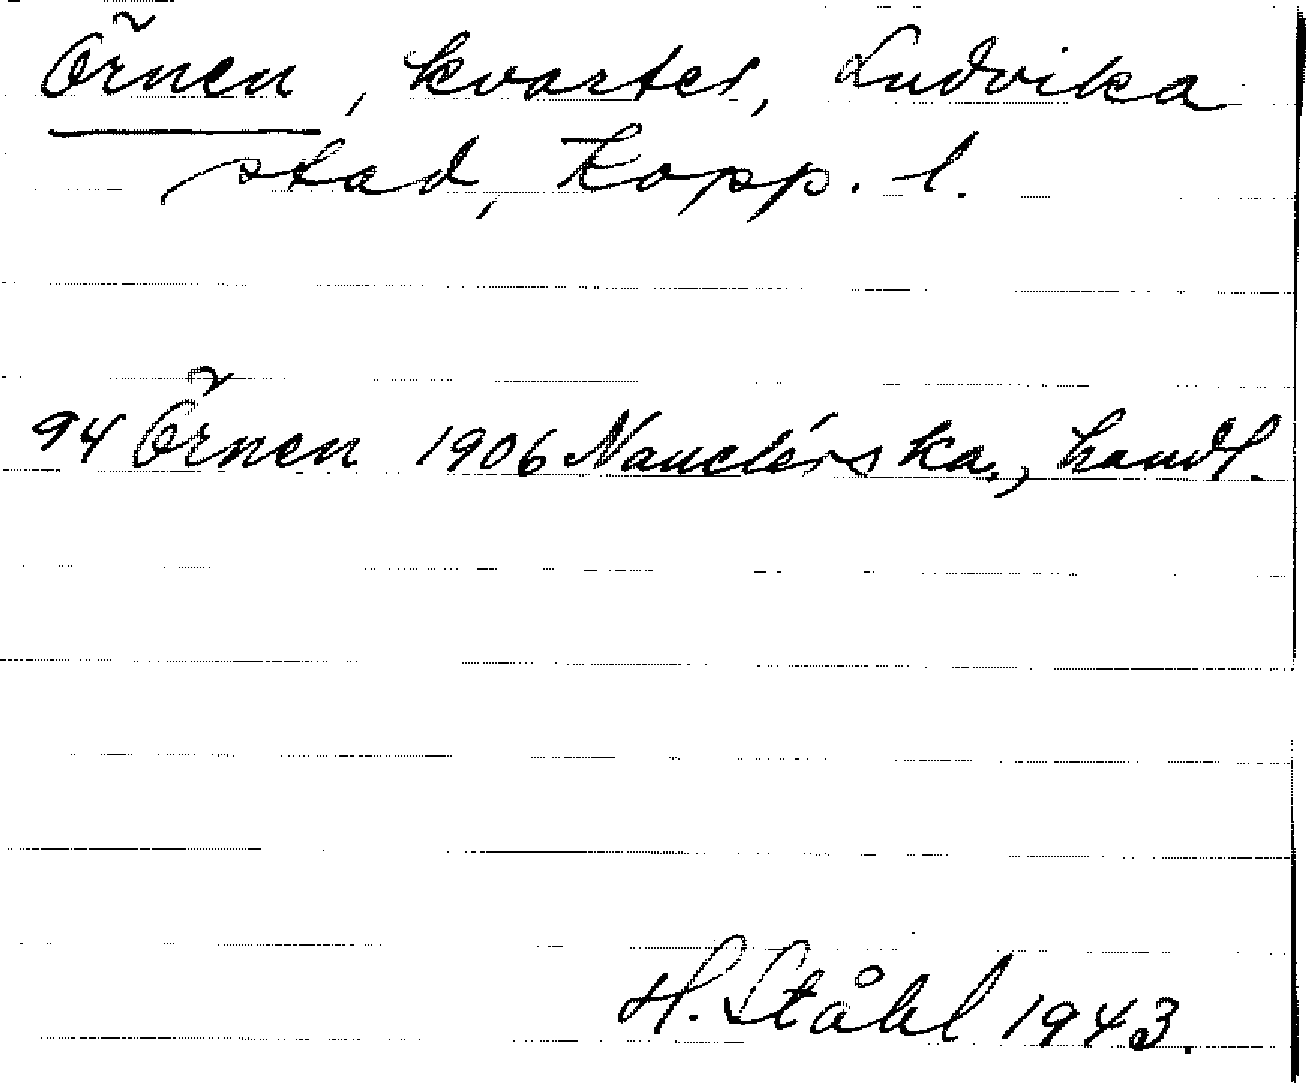 Örnen, kvarter, Ludvika
stad, Kopp. l.
94 Örnen 1906 Nauclérska, handl.
H. Ståhl 1943.